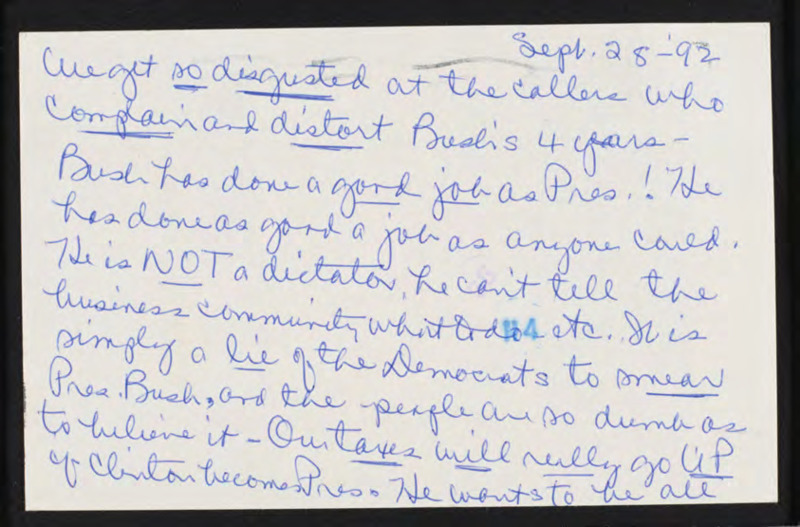 Sept. 28-'92
We get so disgusted at the callers who
complain and distort Bush's 4 years -
Bush has done a good job as Pres.! He
has done as good a job as anyone could.
He is NOT a dictator, he can't tell the
business community what to do etc. It is
simply a lie of the Democrats to smear
Pres. Bush, and the people are so dumb as
to believe it - Our taxes will really go UP
if Clinton becomes Pres. He wants to be all